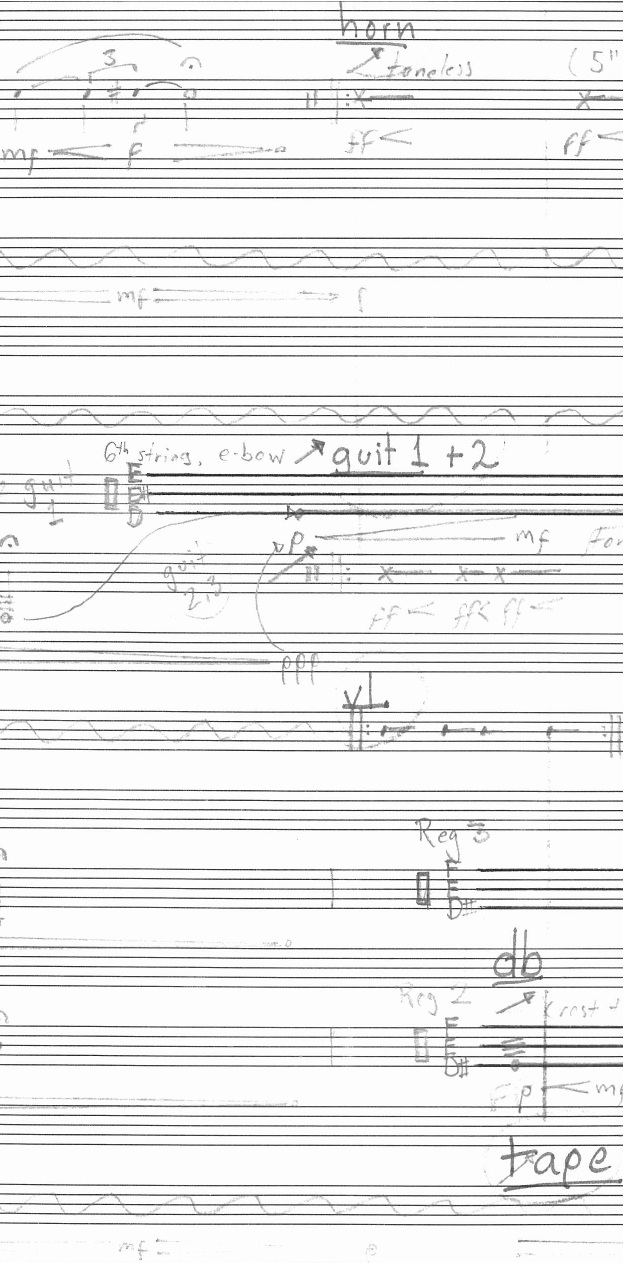 horn
3
toneless (5"
mf f ff ff
mf f
6th string, e-bow guit 1 + 2
guit E
1 D
p mf
guit
2,3
ff ff ff
ppp
vl
Reg 3
F
E
D#
db
Reg 2
rest
F
E
D#
p mf
tape
mf